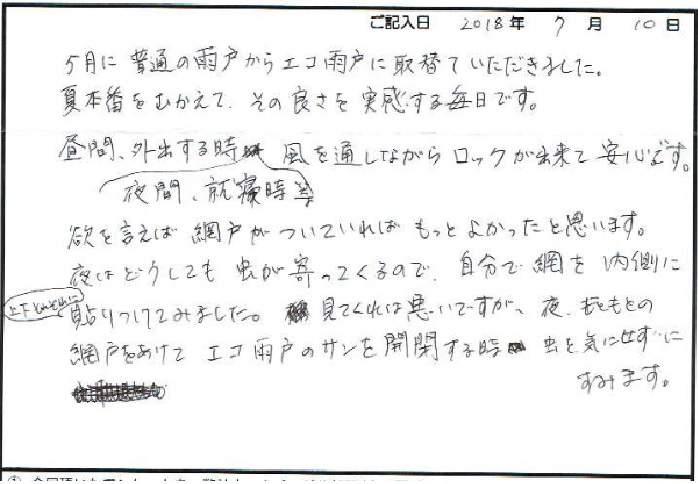 ご記入日 2018年 7月 10日
5月に普通の雨戸からエコ雨戸に取替ていただきました。
夏本番をむかえて、その良さを実感する毎日です。
昼間、外出する時 風を通しながらロックが出来て安心です。
夜間、就寝時等
欲を言えば網戸がついていればもっとよかったと思います。
夜はどうしても虫が寄ってくるので、自分で網を内側に
上下それぞれに
貼りつけてみました。見てくれは悪いですが、夜、もともとの
網戸をあけてエコ雨戸のサンを開閉する時 虫を気にせずに
すみます。